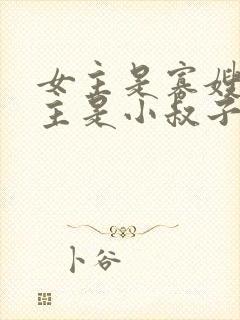 女主是寡嫂
主是小叔子
卜谷